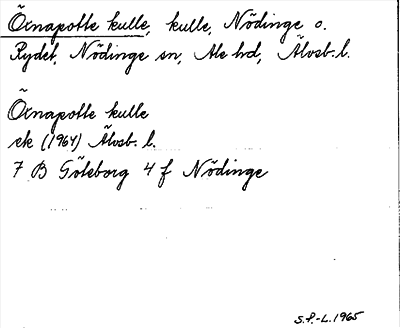 Örnapotte kulle, kulle, Nödinge o.
Rydet, Nödinge sn, Ale hd, Älvsb. l.
Örnapotte kulle
ek (1964) Älvsb. l.
7 B Göteborg 4 f Nödinge
S.P.-L. 1965